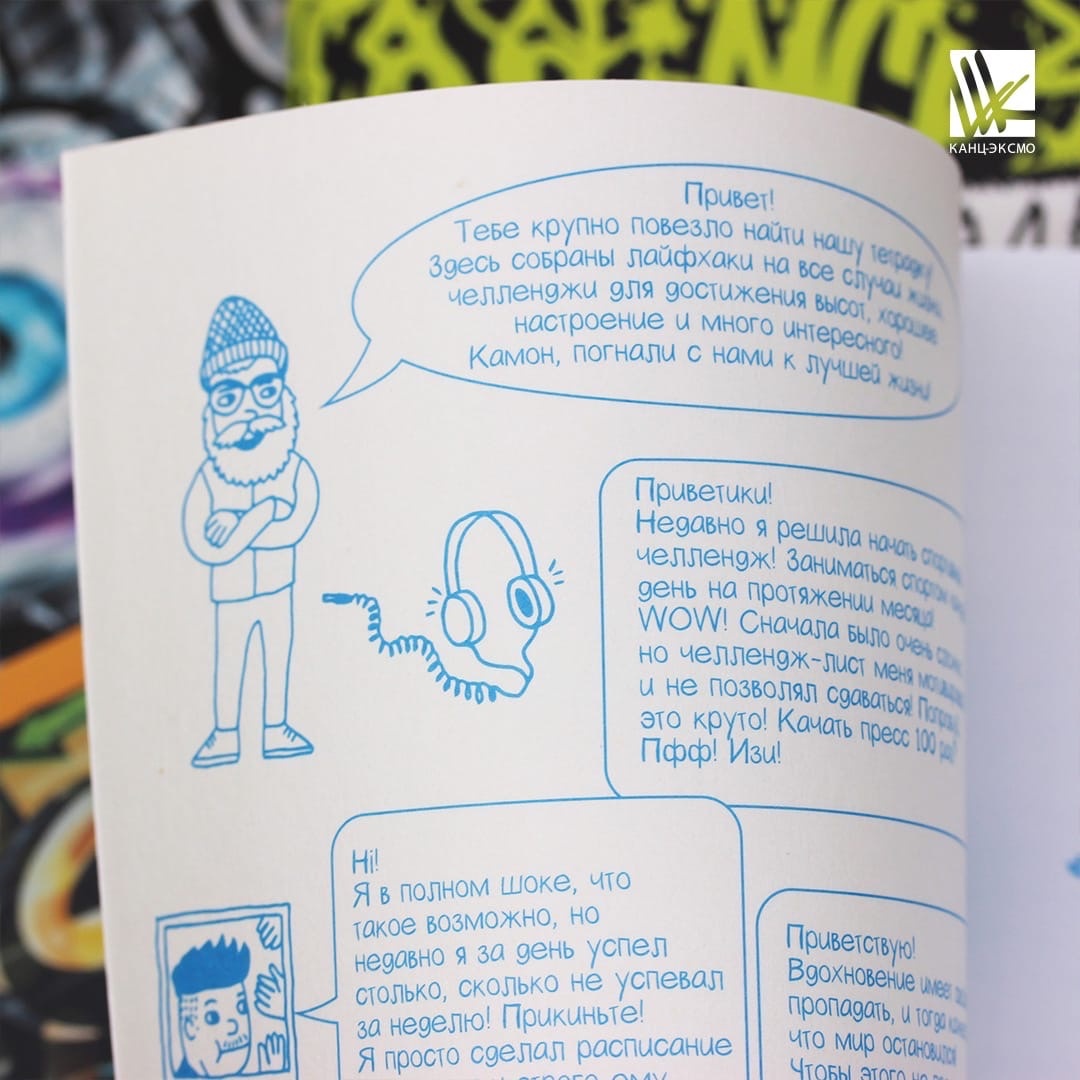 КАНЦ-ЭКСМО
Привет!
Тебе крупно повезло найти нашу тетрадку!
Здесь собраны лайфхаки на все случаи жизни,
челленджи для достижения высот, хорошее
настроение и много интересного!
Камон, погнали с нами к лучшей жизни!
Приветики!
Недавно я решила начать
челлендж! Заниматься спортом
день на протяжении месяца!
WOW! Сначала было очень
но челлендж-лист меня
и не позволял сдаваться!
это круто! Качать пресс 100 раз?
Пфф! Изи!
Hi!
Я в полном шоке, что
такое возможно, но
недавно я за день успел
столько, сколько не успевал
за неделю! Прикиньте!
Я просто сделал расписание
Приветствую!
Вдохновение имеет
пропадать, и тогда
что мир остановился
Чтобы этого не